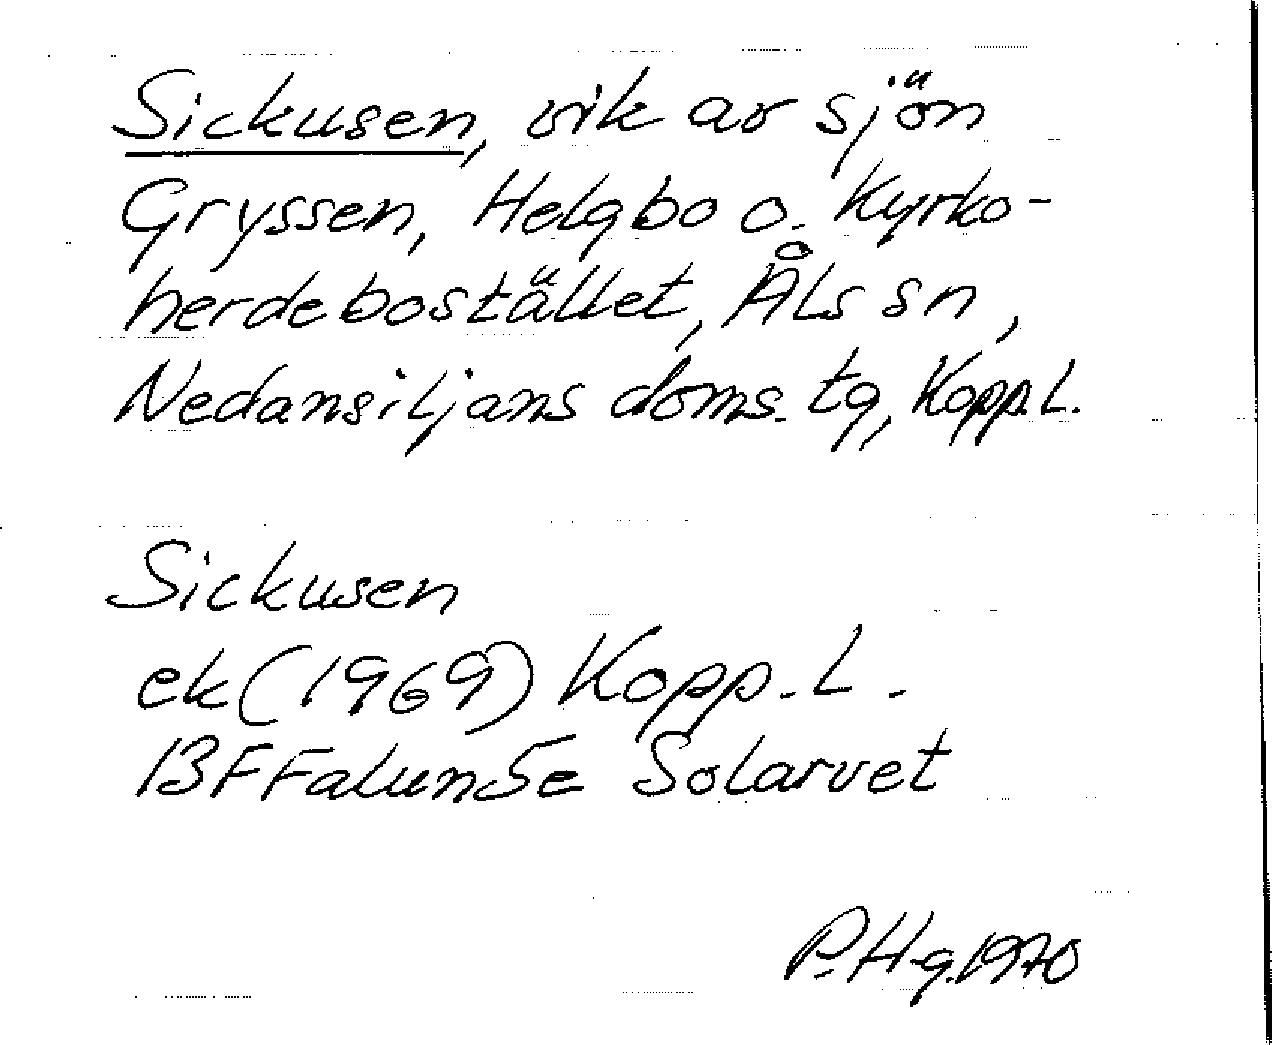 Sickusen, vik av sjön
Gryssen, Helgbo o. Kyrko-
herdebostället, Åls sn,
Nedansiljans doms. tg, Kopp.L.
Sickusen
ek (1969) Kopp.L.
13F Falun 5e Solarvet
P. Hg. 1970